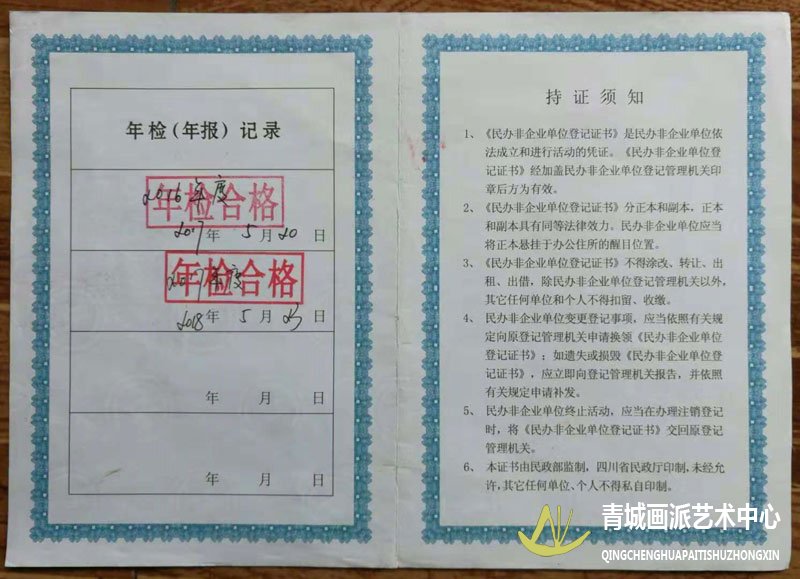 年检（年报）记录
2016年度
年检合格
2017年5月20日
2017年度
年检合格
2018年5月23日
年 月 日
年 月 日
持证须知
1、《民办非企业单位登记证书》是民办非企业单位依
法成立和进行活动的凭证。《民办非企业单位登
记证书》经加盖民办非企业单位登记管理机关印
章后方为有效。
2、《民办非企业单位登记证书》分正本和副本，正本
和副本具有同等法律效力。民办非企业单位应当
将正本悬挂于办公住所的醒目位置。
3、《民办非企业单位登记证书》不得涂改、转让、出
租、出借，除民办非企业单位登记管理机关以外，
其它任何单位和个人不得扣留、收缴。
4、民办非企业单位变更登记事项，应当依照有关规
定向原登记管理机关申请换领《民办非企业单位
登记证书》；如遗失或损毁《民办非企业单位登
记证书》，应立即向登记管理机关报告，并依照
有关规定申请补发。
5、民办非企业单位终止活动，应当在办理注销登记
时，将《民办非企业单位登记证书》交回原登记
管理机关。
6、本证书由民政部监制，四川省民政厅印制，未经允
许，其它任何单位、个人不得私自印制。
青城画派艺术中心
QINGCHENGHUAPAITISHUZHONGXIN